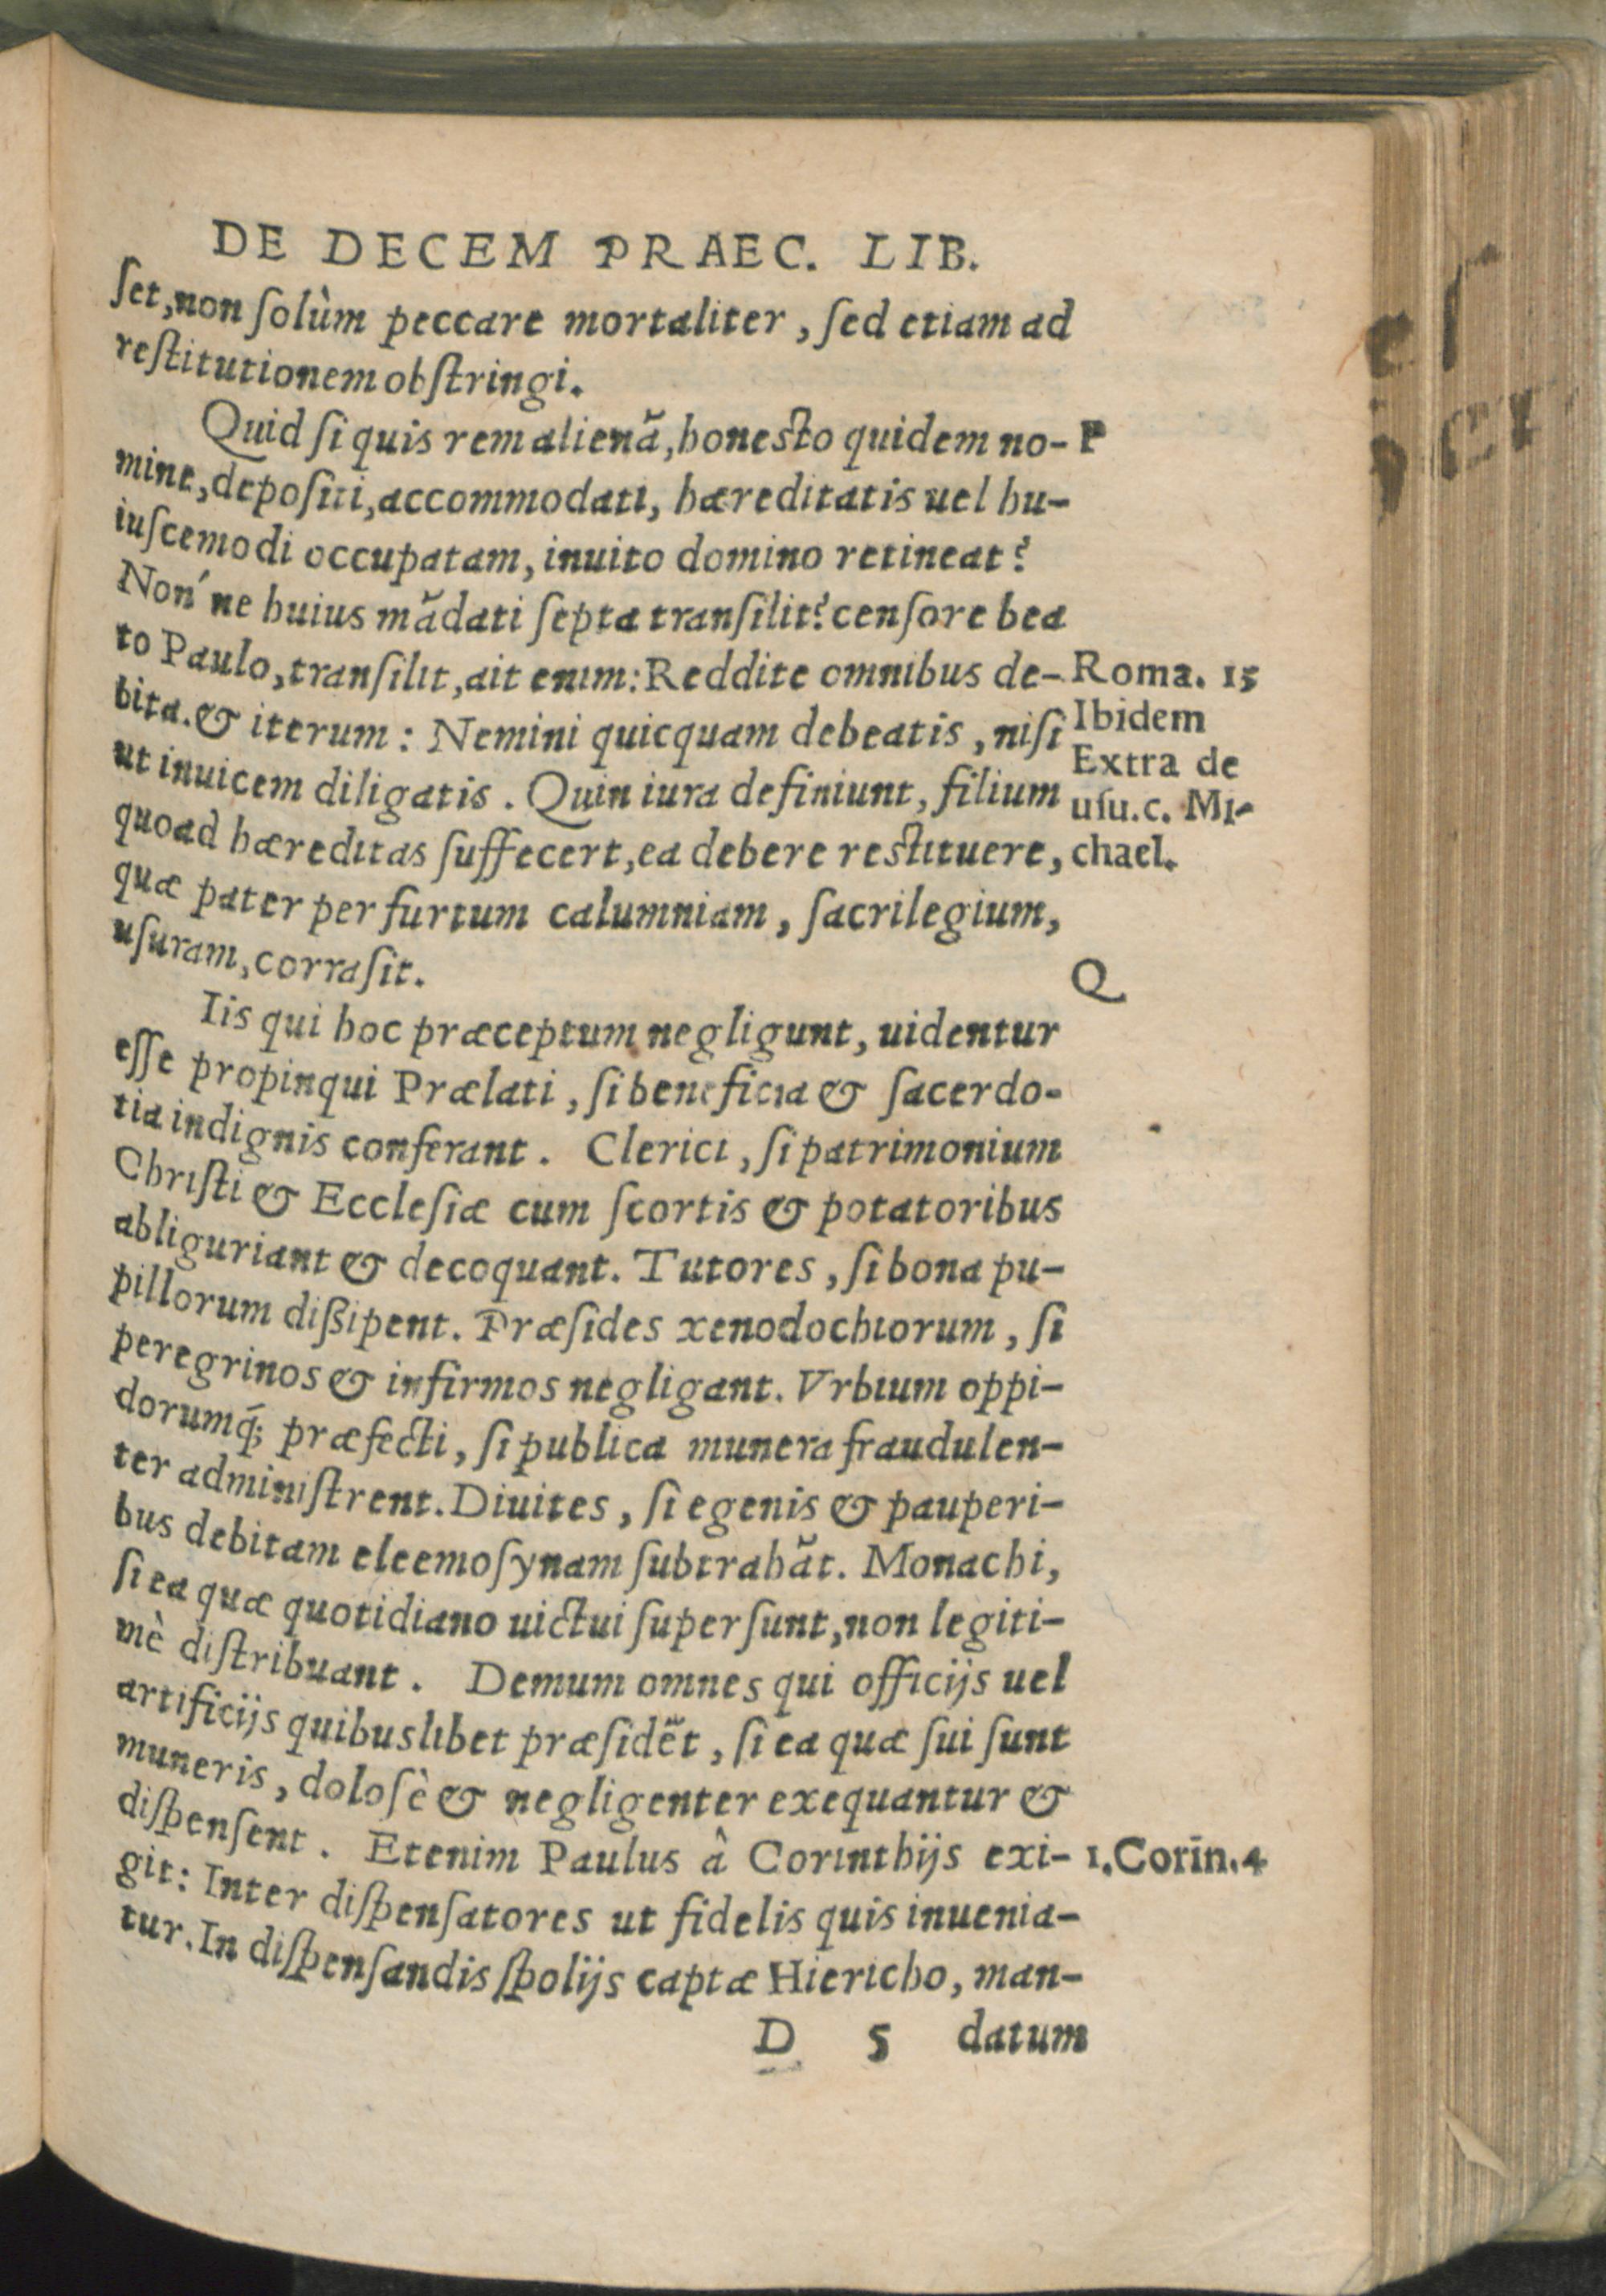 DE DECEM PRAEC. LIB.
ſet, non ſolùm peccare mortaliter, ſed etiam ad
reſtitutionem obſtringi.
Quid ſi quis rem alienā, honesto quidem no- P
mine, depoſiti, accommodati, hæreditatis uel hu-
iuſcemodi occupatam, inuito domino retineat?
Non'ne huius mādati ſepta tranſilit? cenſore bea
to Paulo, tranſilit, ait enim: Reddite omnibus de- Roma. 15
bita. & iterum: Nemini quicquam debeatis, niſi Ibidem
ut inuicem diligatis. Quin iura definiunt, filium Extra de
uſu. c. Mi-
quoad hæreditas ſuffecert, ea debere restituere, chael.
quæ pater per furtum calumniam, ſacrilegium,
uſuram, corraſit.
Q
Iis qui hoc præceptum negligunt, uidentur
eſſe propinqui Prælati, ſi beneficia & ſacerdo-
tia indignis conferant. Clerici, ſi patrimonium
Chriſti & Eccleſiæ cum ſcortis & potatoribus
abliguriant & decoquant. Tutores, ſi bona pu-
pillorum diſſipent. Præſides xenodochiorum, ſi
peregrinos & infirmos negligant. Vrbium oppi-
dorumq́; præfecti, ſi publica munera fraudulen-
ter adminiſtrent. Diuites, ſi egenis & pauperi-
bus debitam eleemoſynam ſubtrahāt. Monachi,
ſi ea quæ quotidiano uictui ſuperſunt, non legiti-
mè diſtribuant. Demum omnes qui officijs uel
artificijs quibuslibet præſidēt, ſi ea quæ ſui ſunt
muneris, doloſè & negligenter exequantur &
diſpenſent. Etenim Paulus â Corinthijs exi- 1. Corīn. 4
git: Inter diſpenſatores ut fidelis quis inuenia-
tur. In diſpenſandis ſpolijs captæ Hiericho, man-
D 5 datum